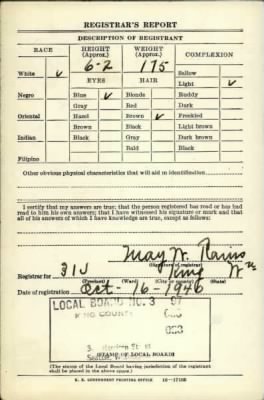 REGISTRAR'S REPORT
DESCRIPTION OF REGISTRANT
RACE HEIGHT (Approx.) WEIGHT (Approx.) COMPLEXION
6-2 175 Sallow
White ✓ EYES HAIR Light ✓
Negro Blue ✓ Blonde Ruddy
Gray Red Dark
Oriental Hazel Brown ✓ Freckled
Brown Black Light brown
Indian Black Gray Dark brown
Bald Black
Filipino
Other obvious physical characteristics that will aid in identification
I certify that my answers are true; that the person registered has read or has had
read to him his own answers; that I have witnessed his signature or mark and that
all of his answers of which I have knowledge are true, except as follows:
May W.
(Signature of registrar)
Registrar for 31J King Wn
(Precinct) (Ward) (City or county) (State)
Date of registration Oct-16-1946
LOCAL BOARD NO. 3 97
KING COUNTY
033
(STAMP OF LOCAL BOARD)
(The stamp of the Local Board having jurisdiction of the registrant
shall be placed in the above space.)
U. S. GOVERNMENT PRINTING OFFICE